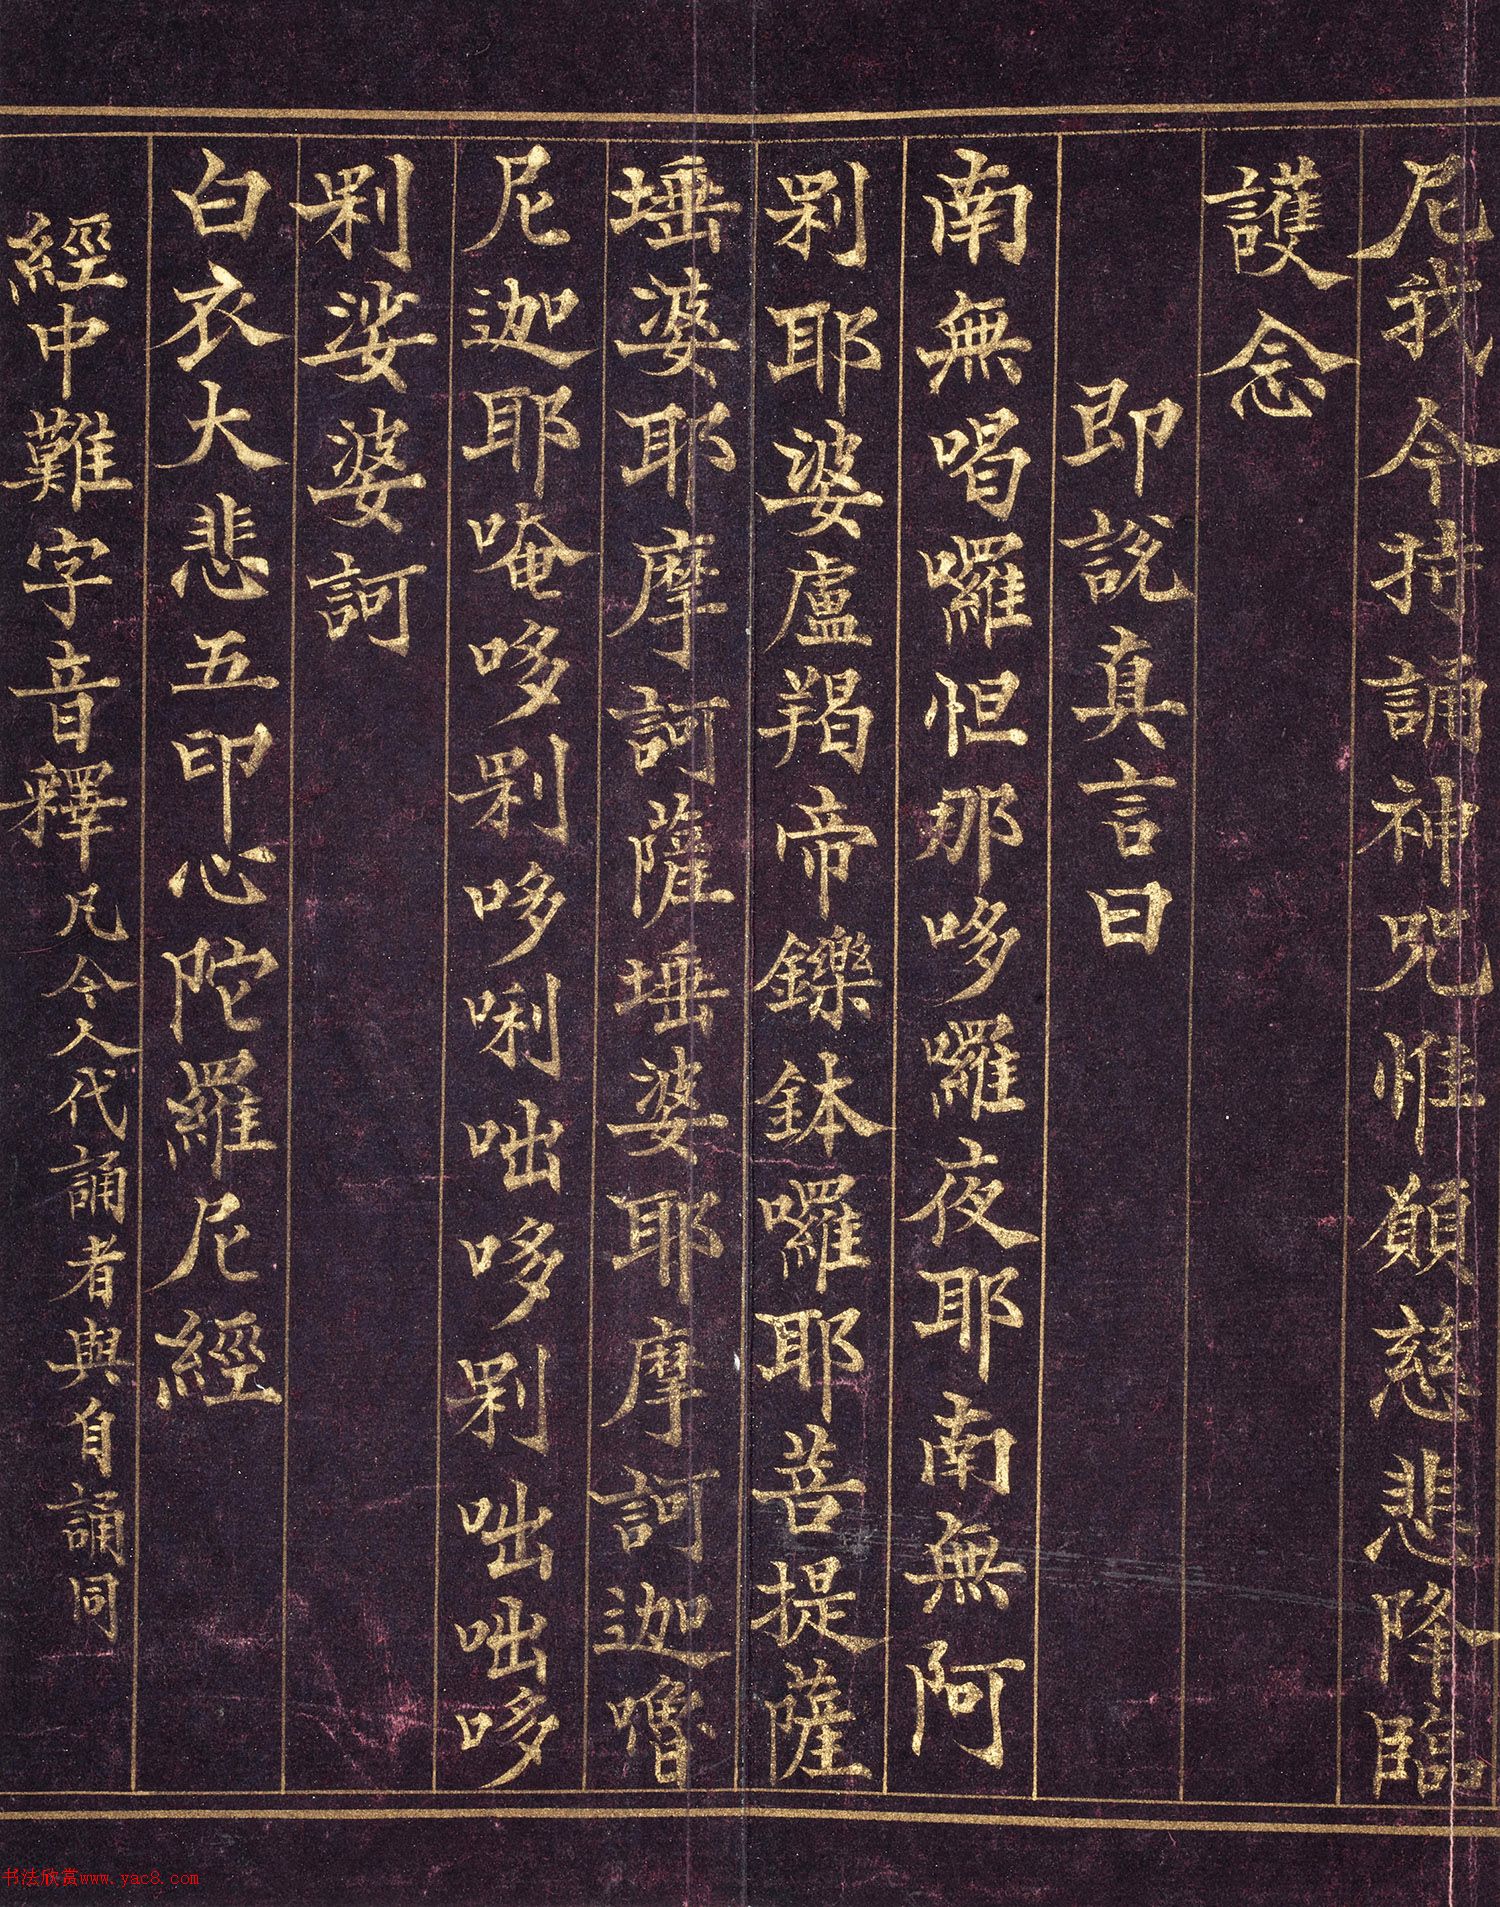 尼我今持誦神咒惟願慈悲降臨
護念
即說真言曰
南無喝囉怛那哆囉夜耶南無阿
唎耶婆盧羯帝鑠鉢囉耶菩提薩
埵婆耶摩訶薩埵婆耶摩訶迦嚕
尼迦耶唵哆唎哆唎咄哆唎咄咄哆
唎娑婆訶
白衣大悲五印心陀羅尼經
經中難字音釋凡令人代誦者與自誦同
书法欣赏www.yac8.com